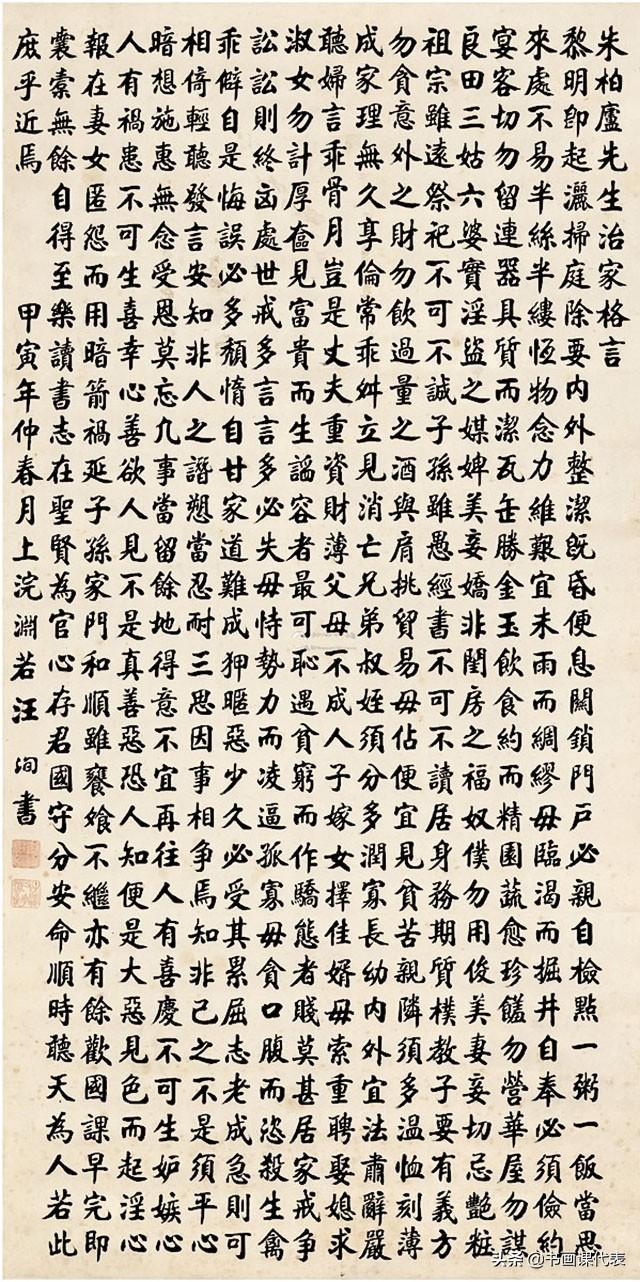 朱柏廬先生治家格言
黎明即起灑掃庭除要内外整潔既昏便息關鎖門戶必親自檢點一粥一飯當思
來處不易半絲半縷恆物念力維艱宜未雨而綢繆毋臨渴而掘井自奉必須儉約
宴客切勿留連器具質而潔瓦缶勝金玉飲食約而精園蔬愈珍饈勿營華屋勿謀
良田三姑六婆實淫盜之媒婢美妾嬌非閨房之福奴僕勿用俊美妻妾切忌艷粧
祖宗雖遠祭祀不可不誠子孫雖愚經書不可不讀居身務期質樸教子要有義方
勿貪意外之財勿飲過量之酒與肩挑貿易毋佔便宜見貧苦親隣須多温恤刻薄
成家理無久享倫常乖舛立見消亡兄弟叔姪須分多潤寡長幼内外宜法肅辭嚴
聽婦言乖骨月豈是丈夫重資財薄父母不成人子嫁女擇佳婿毋索重聘娶媳求
淑女勿計厚奩見富貴而生諂容者最可恥遇貧窮而作驕態者賤莫甚居家戒争
訟訟則終凶處世戒多言言多必失毋恃勢力而凌逼孤寡毋貪口腹而恣殺生禽
乖僻自是悔誤必多頹惰自甘家道難成狎暱惡少久必受其累屈志老成急則可
相倚輕聽發言安知非人之譖愬當忍耐三思因事相争焉知非己之不是須平心
暗想施惠無念受恩莫忘凡事當留餘地得意不宜再往人有喜慶不可生妒嫉心
人有禍患不可生喜幸心善欲人見不是真善惡恐人知便是大惡見色而起淫心
報在妻女匿怨而用暗箭禍延子孫家門和順雖饔飧不繼亦有餘歡國課早完即
囊橐無餘自得至樂讀書志在聖賢為官心存君國守分安命順時聽天為人若此
庶乎近焉
甲寅年仲春月上浣淵若汪洵書
头条 @书画课代表